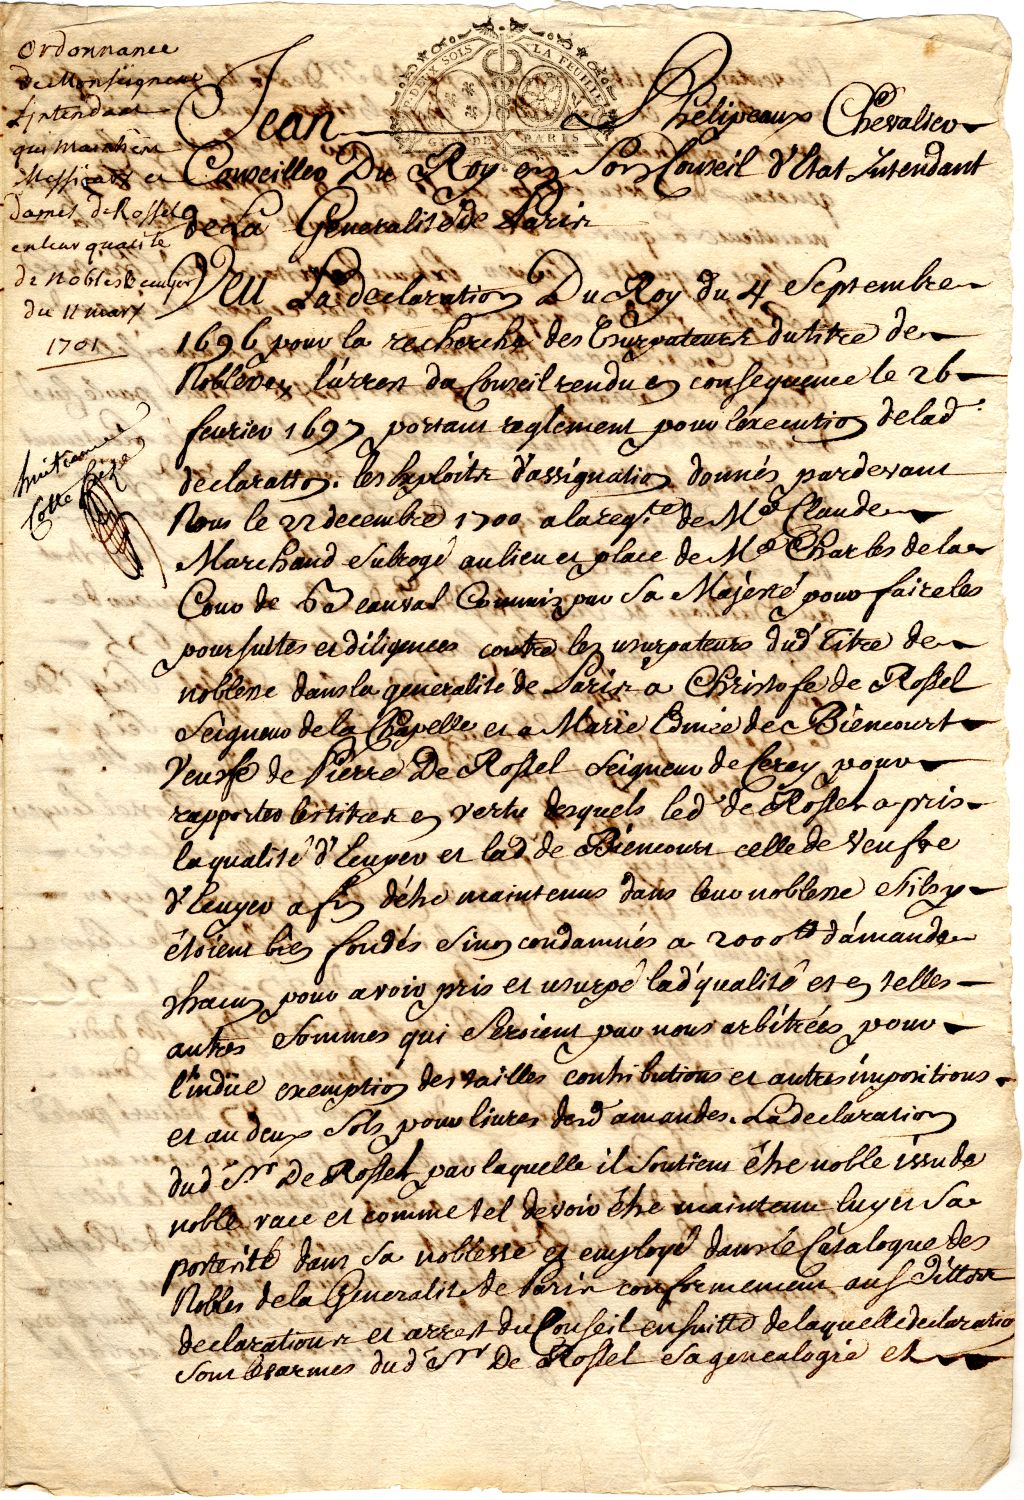 Ordonnance
de Monseigneur
L'Intendant
qui maintien
Messieurs et
dames De Rossel
en leur qualité
de Nobles & ecuyers
du 11 marx
1701
huitieme
Cotte
DEUX SOLS LA FEUILLE
GEN DE PARIS
Jean Phelipeaux Chevalier
Conseiller Du Roy en Son Conseil d'Etat Intendant
de La Generalité de Paris
Veu La declaration Du Roy du 4 Septembre
1696 pour la recherche des Usurpateurs du titre de
Noblesse, l'arrest du Conseil rendu en consequence le 26
feurier 1697 portant reglement pour l'execution de lad.
declaratton. les Exploits d'assignation donnés pardevant
Nous le 22 decembre 1700 a la req.te de Me Claude
Marchand Subrogé au lieu et place de Me Charles de la
Cour de Beauval Commis par Sa Majesté pour faire les
poursuites et diligences contre les usurpateurs dud. Titre de
noblesse dans la generalité de Paris a Christofe de Rossel
Seigneur de la Chapelle et a Marie Edmée de Biencourt
Veufve de Pierre De Rossel Seigneur de Cerey pour
rapporter les titres en vertu desquels led. de Rossel a pris
la qualité d'Ecuyer et lad. de Biencourt celle de Veufve
d'Ecuyer afin d'être maintenus dans leur noblesse S'ils y
étoient bien fondés Sinon condamnés a 2000tt d'amande
chacun pour avoir pris et usurpé lad. qualité et en telles
autres Sommes qui Seroient par nous arbitrées pour
l'indüe exemption des tailles contributions et autres impositions
et au deux Sols pour livres desd. amandes. La declaration
dud. Sr. De Rossel par laquelle il Soutient être noble issu de
noble race et comme tel devoir être maintenu luy et Sa
posterité dans Sa noblesse et employé dans le Catalogue des
Nobles de la Generalité de Paris conformement ausd. Dittes
declarations et arrest du Conseil en suitte de laquelle declaration
Sont les armes dud. Sr. De Rossel Sa genealogie et